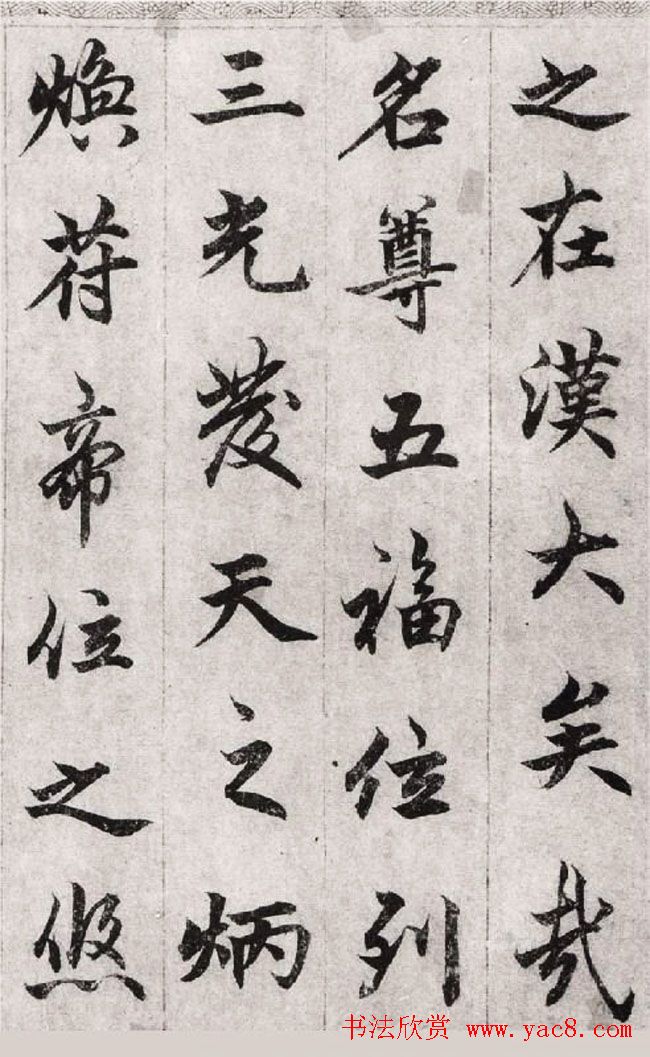 之在漢大矣哉
名尊五福位列
三光發天之炳
煥荷帝位之悠
书法欣赏 www.yac8.com